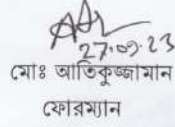 27.09.23
মোঃ আতিকুজ্জামান
ফোরম্যান